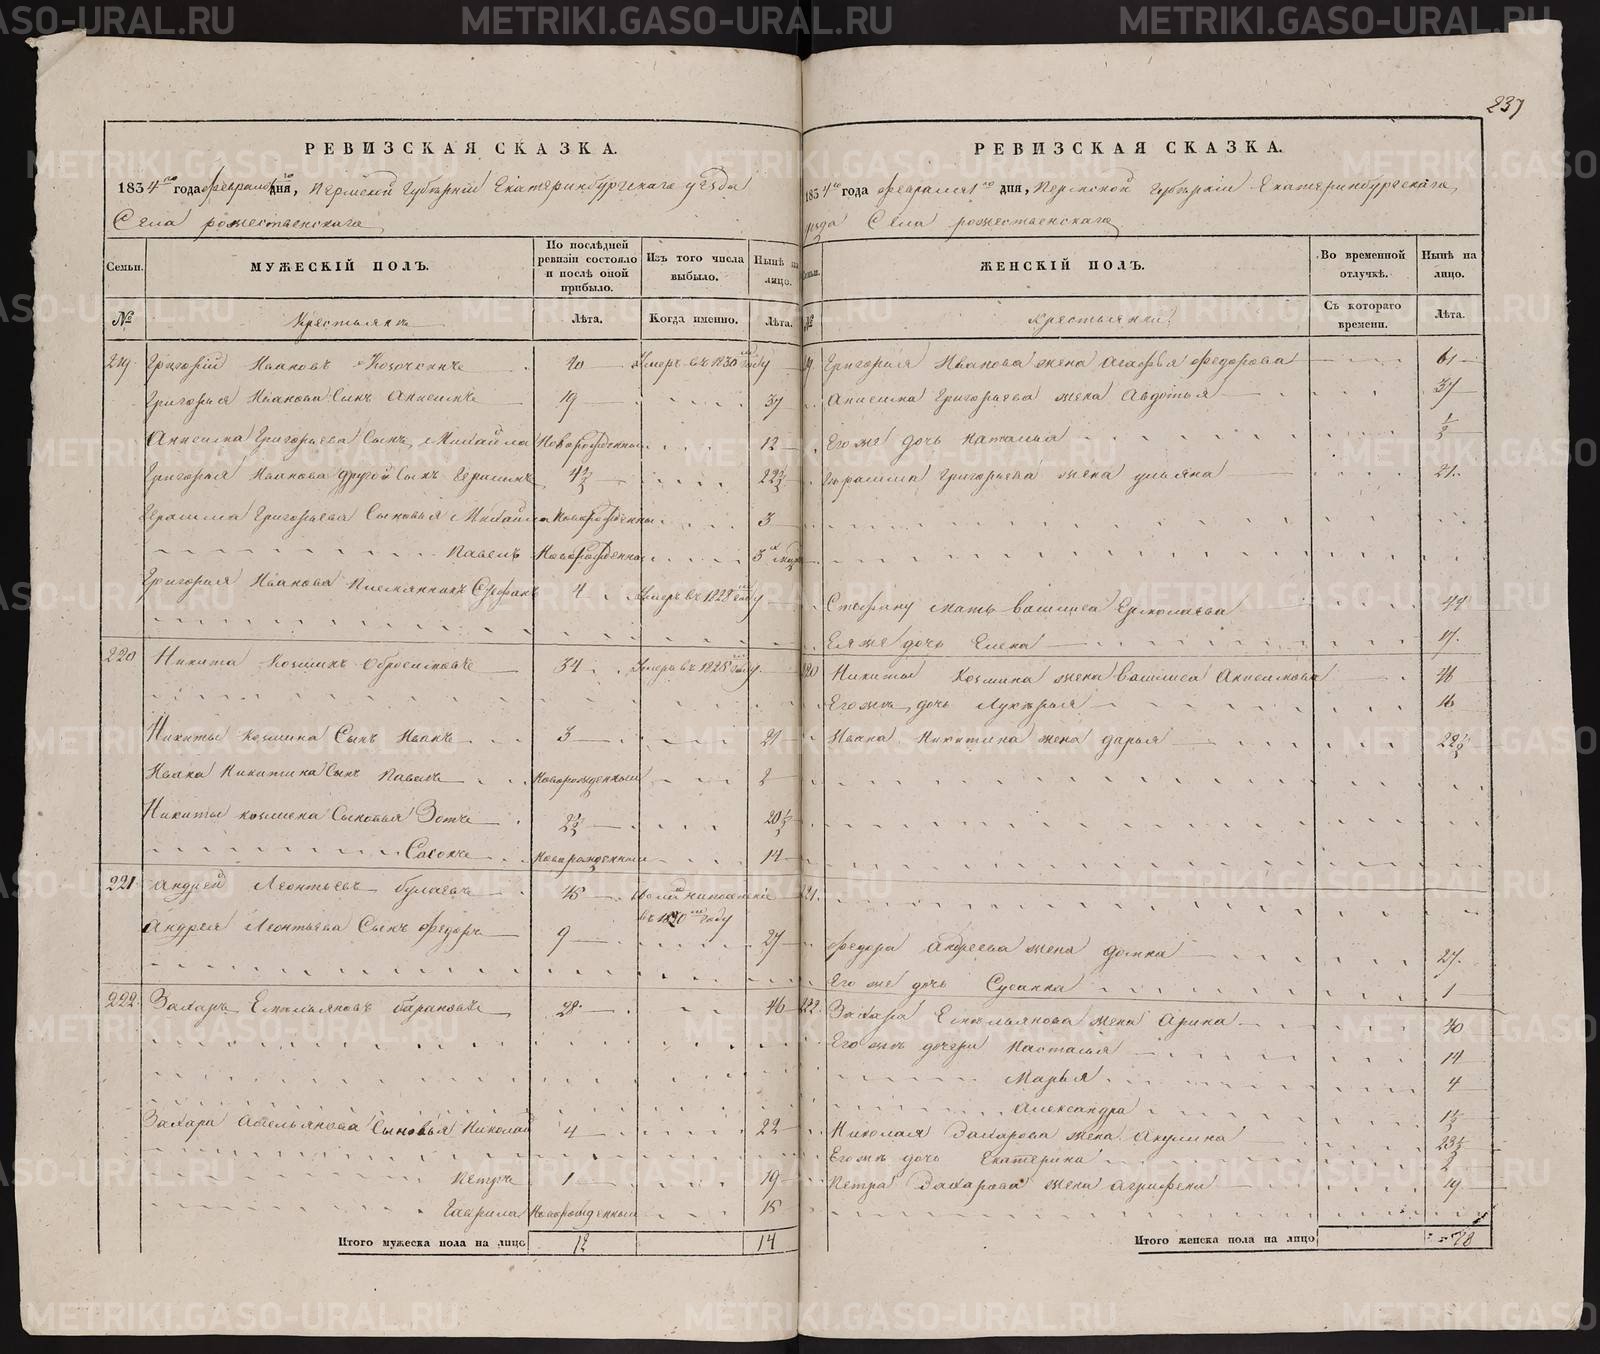 237
РЕВИЗСКАЯ СКАЗКА.
1834 го года февраля дня, Пермской Губернии Екатеринбургскаго уезда
Села рожественскаго
Семьи.
МУЖЕСКІЙ ПОЛЪ.
По послѣдней ревизіи состояло и послѣ оной прибыло.
Изъ того числа выбыло.
Нынѣ на лицо.
№
Крестьянъ
Лѣта.
Когда именно.
Лѣта.
219. Григорій Ивановъ 40 Умеръ въ 1830 году
Григорья Иванова Сынъ Анисимъ 19 37
Анисима Григорьева Сынъ Михайла Новорожденный 12
Григорья Иванова другой Сынъ Герасимъ 4½ 22½
Герасима Григорьева Сыновья Михайла Новорожденны 3
Павелъ Новорожденны 3
Григорья Иванова племянникъ Стефанъ 4 Умеръ въ 1828 году
220 Никита Козминъ 34 Умеръ въ 1828 году
Никиты Козмина Сынъ Иванъ 3 21
Ивана Никитина Сынъ Павелъ Новорожденный 2
Никиты Козмина Сыновья Зотъ 2½ 20½
Новорожденный 14
221 Андрей Леонтьевъ 45
въ году
Андрея Леонтьева Сынъ Федоръ 9 27
222 Захаръ Емельяновъ Барановъ 28 46
Захара Сыновья Николай 4 22
Петръ 1 19
Гаврила Новорожденный 15
Итого мужеска пола на лицо 14
РЕВИЗСКАЯ СКАЗКА.
1834 го года февраля дня, Пермской Губерніи Екатеринбургскаго
уезда Села рожественскаго
Семьи.
ЖЕНСКІЙ ПОЛЪ.
Во временной отлучкѣ.
Нынѣ на лицо.
№
Крестьянки
Съ котораго времени.
Лѣта.
Григорья Иванова жена Агафья Федорова 61
Анисима Григорьева жена Авдотья 37
Его же дочь Наталья ½
Герасима Григорьева жена Ульяна 21
Стефану мать Василиса Ермолаева 44
Ея же дочь Елена 17
Никиты Козмина жена Василиса Анисимова 46
Его же дочь Лукерья 16
Ивана Никитина жена Дарья 22½
Федора Андреева жена Домна 27
Его же дочь Сусанна 1
222. Захара Емельянова жена Арина 40
Его же дочери Настасья 14
Марья 4
Александра 1½
Николая Захарова жена Акулина 23½
Его же дочь Екатерина 2
Петра Захарова жена Агрифена 19
Итого женска пола на лицо 18